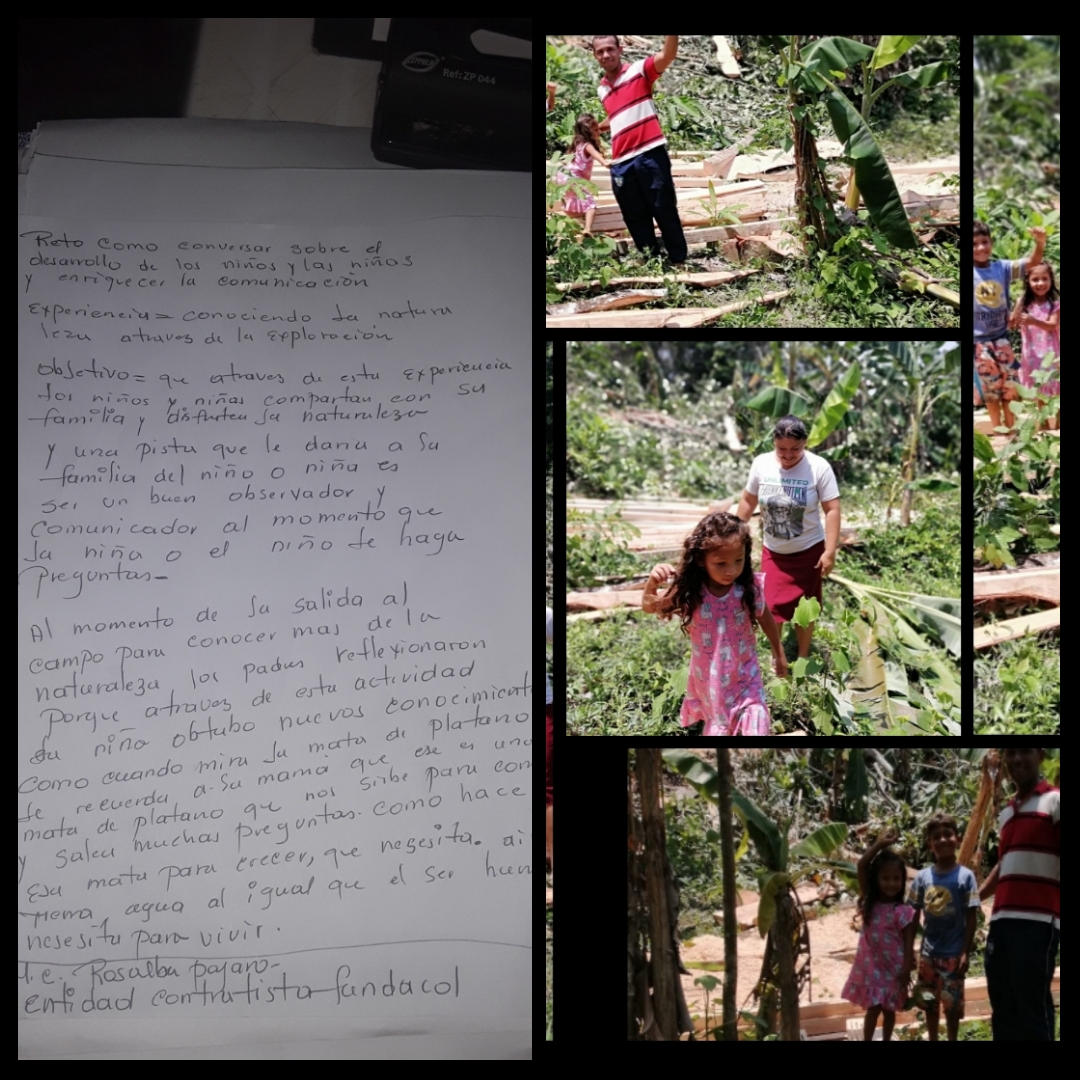 Ref: ZP 044
Reto como conversar sobre el
desarrollo de los niños y las niñas
y enriquecer la comunicación
Experiencia= conociendo la natura
leza atraves de la exploración
Objetivo= que atraves de esta experiencia
los niños y niñas compartan con su
familia y disfruten la naturaleza
y una pista que le daria a la
familia del niño o niña es
ser un buen observador y
comunicador al momento que
la niña o el niño le haga
preguntas-
Al momento de la salida al
campo para conocer mas de la
naturaleza los padres reflexionaron
porque atraves de esta actividad
su niño obtubo nuevos conocimient
como cuando mira la mata de platano
le recuerda a su mamá que ese es una
mata de platano que nos sirbe para com
y salen muchas preguntas. como hace
esa mata para crecer, que nesesita. ai
tierra, agua al igual que el ser hum
nesesita para vivir.
Rosalba pajaro-
entidad contratista fundacol
UNLIMITED